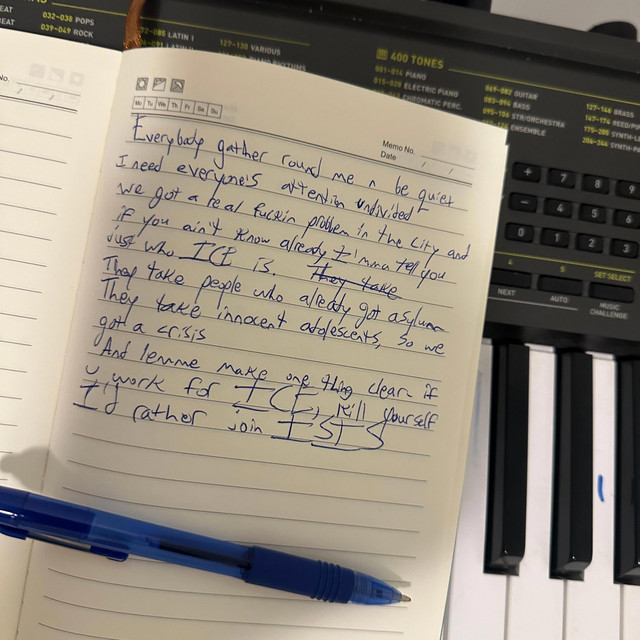 032-038 POPS
039-049 ROCK
LATIN I
127-130 VARIOUS
400 TONES
001-014 PIANO
015-028 ELECTRIC PIANO
CHROMATIC PERC.
069-082 GUITAR
083-094 BASS
STR/ORCHESTRA
ENSEMBLE
127-146 BRASS
147-174 REED/
SYNTH-
SYNTH-PA
No.
Mo Tu We Th Fr Sa Su
Memo No.
Date / /
Everybody gather round me n be quiet
I need everyone's attention undivided
we got a real fuckin problem in the city and
if you ain't know already I imma tell you
just who ICE is. They take
They take people who already got asylum
They take innocent adolescents, so we
got a crisis
And lemme make one thing clear if
u work for ICE, kill yourself
I'd rather join ISIS
+ 7 8 9
- 4 5 6
0 1 2 3
4 5 SET SELECT
NEXT AUTO MUSIC CHALLENGE